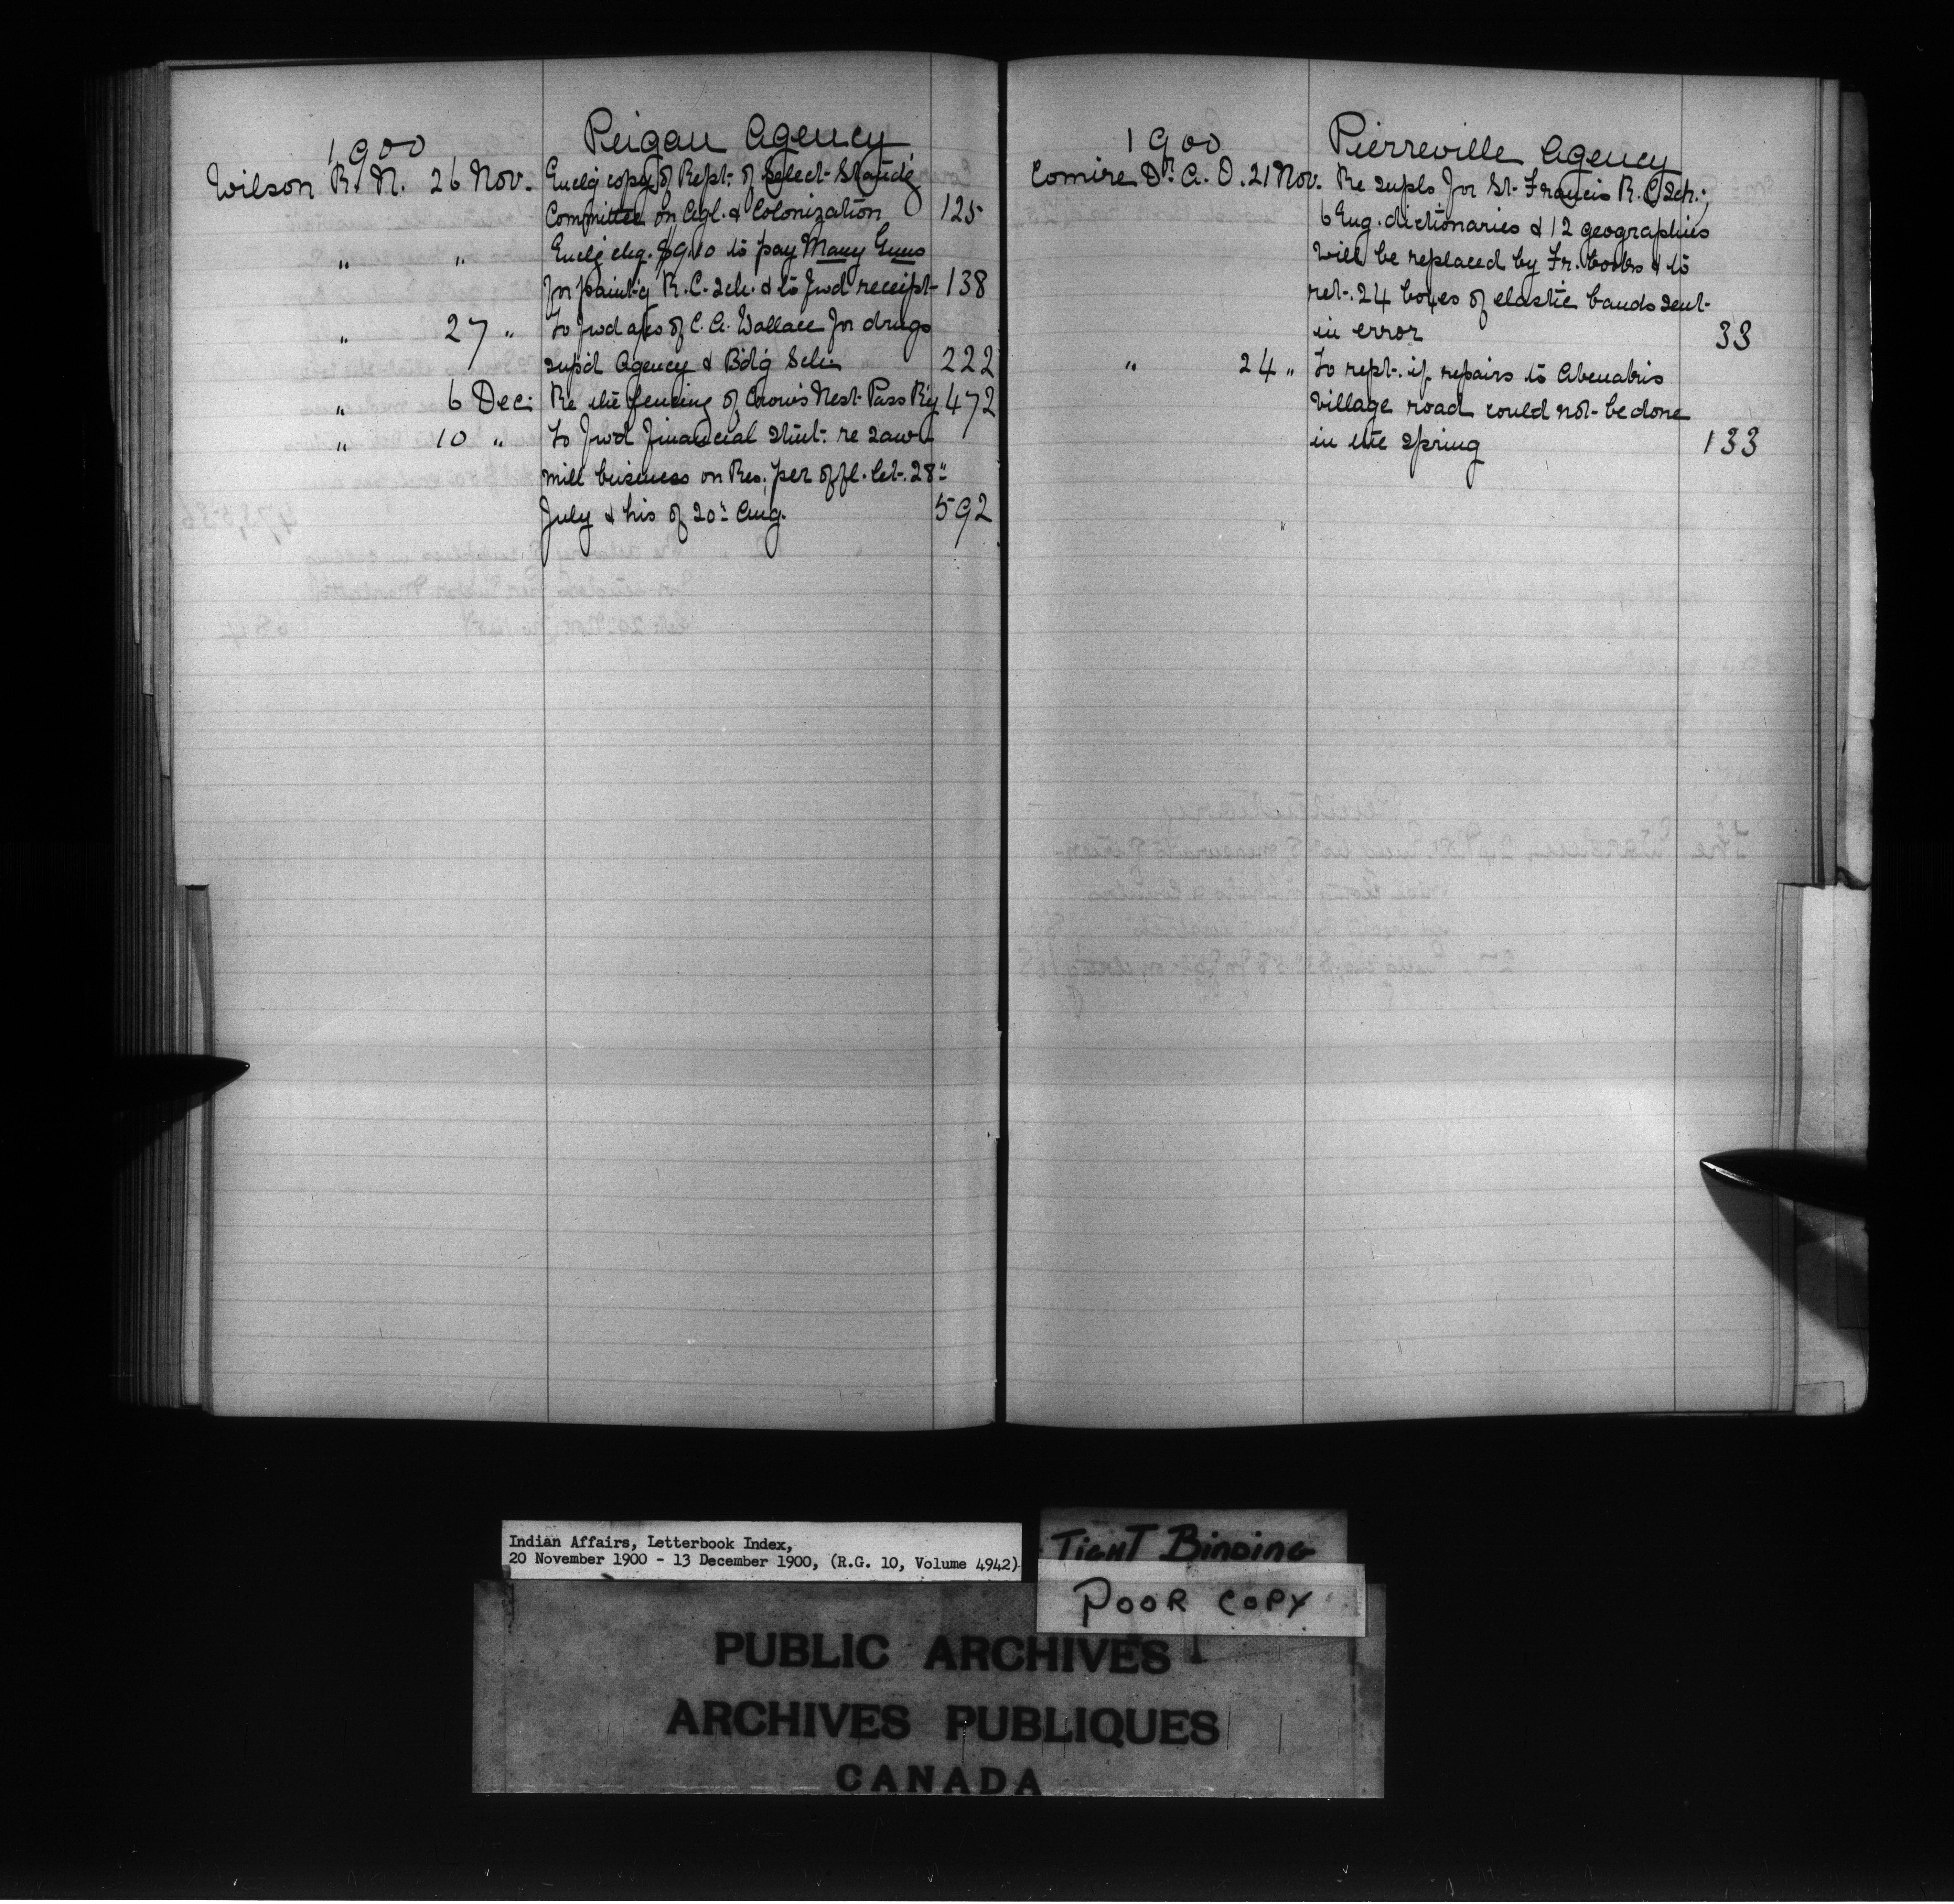 1900 Peigan Agency
Wilson R. N. 26 Nov. Enclg copy of Rept. of Select Standg
Committee on Agl. & Colonization 125
" " Enclg chq. $9.10 to pay Many Guns
for paint'g R.C. Sch. & to fwd receipt 138
" 27 " To fwd a/cs of C. A. Wallace for drugs
sup'd Agency & Bd'g Sch. 222
" 6 Dec. Re the fencing of Crow's Nest Pass R'y 472
" 10 " To fwd financial stmt. re saw
mill business on Res. per offl. let. 28"
July & his of 20" Aug. 592
1900 Pierreville Agency
Comire Dr. A. O. 21 Nov. Re supls for St. Francis R. C. Sch.;
6 Eng. dictionaries & 12 geographies
will be replaced by Fr. books & to
ret. 24 boxes of elastic bands sent
in error 33
" 24 " To rept. if repairs to Abenakis
Village road could not be done
in the spring 133
Indian Affairs, Letterbook Index,
20 November 1900 - 13 December 1900, (R.G. 10, Volume 4942)
TIGHT BINDING
POOR COPY
PUBLIC ARCHIVES
ARCHIVES PUBLIQUES
CANADA